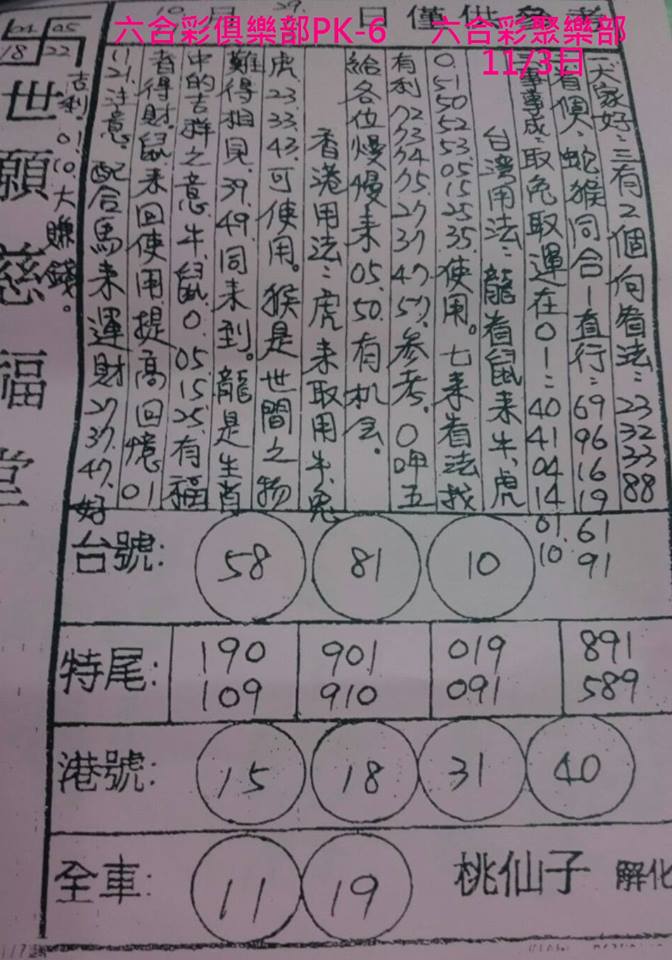 六合彩俱樂部PK-6
六合彩聚樂部
11/3日
10 月 29 日僅供參考
04 05
18 22
世願慈福堂
吉利:01.10大賺錢。
大家好:三有2個向看法:23 32 33 88
有個人、蛇猴同合一直行:69 96 16 19 61 91
事事成:取兔取運在01:40 41 04 14 01 10
台灣用法:龍看鼠來牛、虎
0.51.50.52.53.05.15.25.35.使用。七來看法找
有利72.73.74.75.27.37.47.57.參考。0呷五
給各位慢慢來05.50.有机会。
香港用法:虎來取用牛、兔
虎.23.33.43.可使用。猴是世間之物
難得相見.39.49.同來到。龍是生肖
中的吉祥之意.牛.鼠0.05.15.25.有福
看得財.鼠來回使用.提高回憶.01
11.21.注意.配合馬來運財27.37.47.好
台號: 58 81 10
特尾: 190 901 019 891
109 910 091 589
港號: 15 18 31 40
全車: 11 19 桃仙子 解化